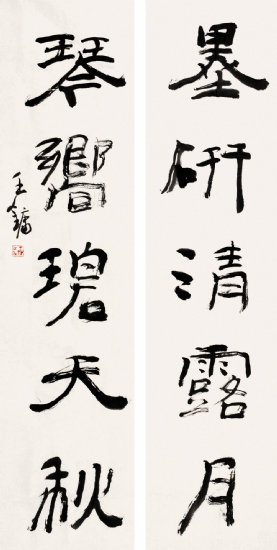 墨研清露月
琴響碧天秋
王鏞